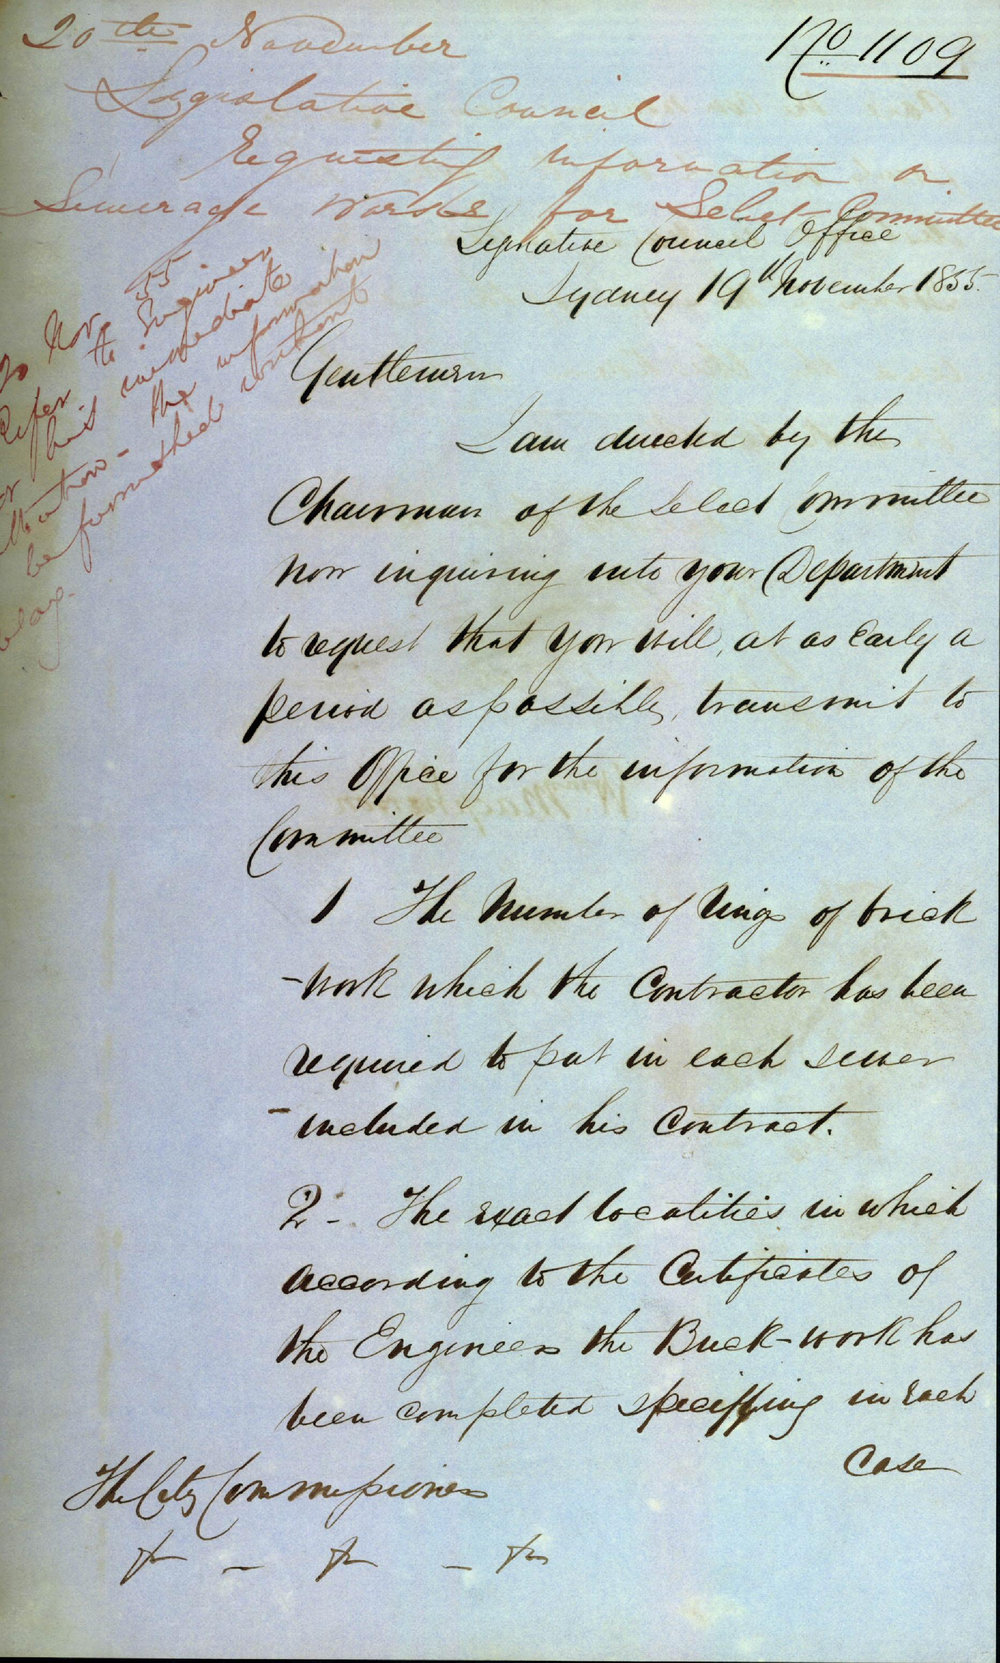 20th November
No 1109
Legislative Council
Requesting information on
Sewerage Works for Select Committee
20 Nov 55
Refer to Engineer
for his immediate
attention - the information
be furnished without
delay.
Legislative Council Office
Sydney 19th November 1855.
Gentlemen
I am directed by the
Chairman of the Select Committee
now inquiring into your Department
to request that you will, at as Early a
period as possible, transmit to
this Office for the information of the
Committee
1 The Number of rings of brick
-work which the Contractor has been
required to put in each sewer
-included in his Contract.
2 - The exact localities in which
according to the Certificates of
the Engineer the Brick-work has
been completed specifying in Each
Case
The City Commissioners